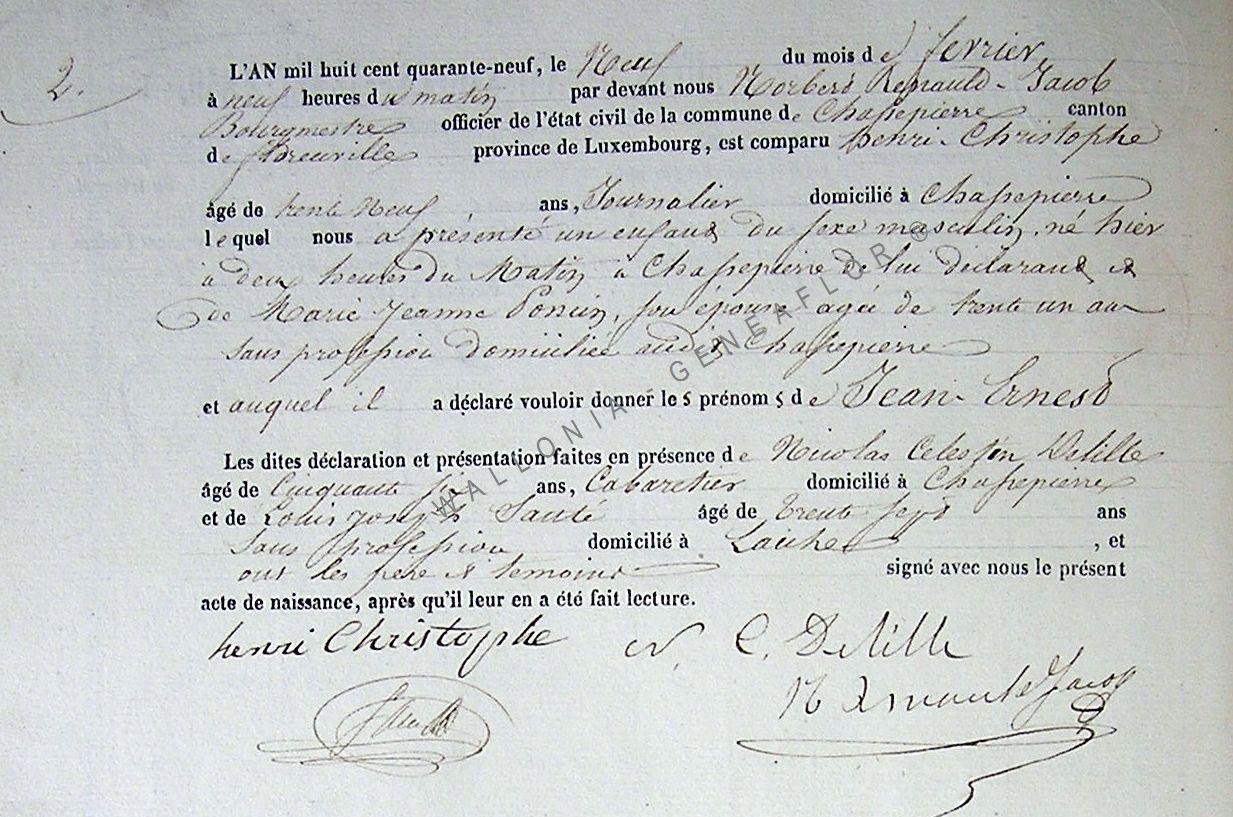 2.
L'AN mil huit cent quarante-neuf, le Neuf du mois de fevrier
à neuf heures du matin par devant nous Norbert Renauld-Jacob
Bourgmestre officier de l'état civil de la commune de Chassepierre canton
de florenville province de Luxembourg, est comparu henri Christophe
âgé de trente Neuf ans, Journalier domicilié à Chassepierre
lequel nous a présenté un enfant du sexe masculin, né hier
à deux heures du Matin à Chassepierre de lui declarant et
de Marie Jeanne Poncin, son épouse agée de trente un ans
sans profession domiciliée audit Chassepierre
et auquel il a déclaré vouloir donner les prénoms de Jean Ernest
Les dites déclaration et présentation faites en présence de Nicolas Celestin Delille
âgé de Cinquante six ans, Cabaretier domicilié à Chassepierre
et de Louis joseph âgé de trente sept ans
sans profession domicilié à Laiche, et
ont les pere et temoins signé avec nous le présent
acte de naissance, après qu'il leur en a été fait lecture.
henri Christophe N. C. Delille
N Renauld Jacob
WALLONIA GENEAFLOR ©